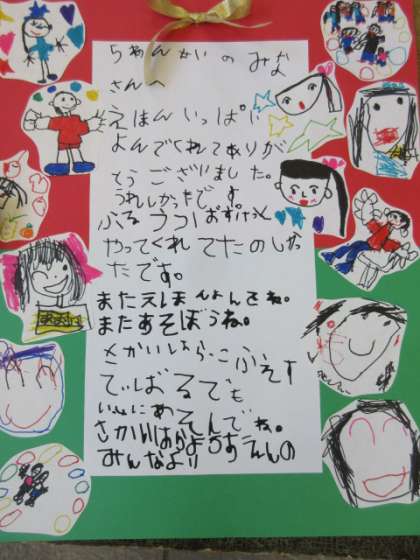 ちゃんかいのみな
さんへ
えほんいっぱい
よんでくれてありが
とうございました。
うれしかったです。
ふるうつばすけっと
やってくれてたのしかっ
たです。
またえほんよんでね。
またあそぼうね。
さかいはら・こふぇす
てぃばるでも
いっしょにあそんでね。
さかいはらようちえんの
みんなより